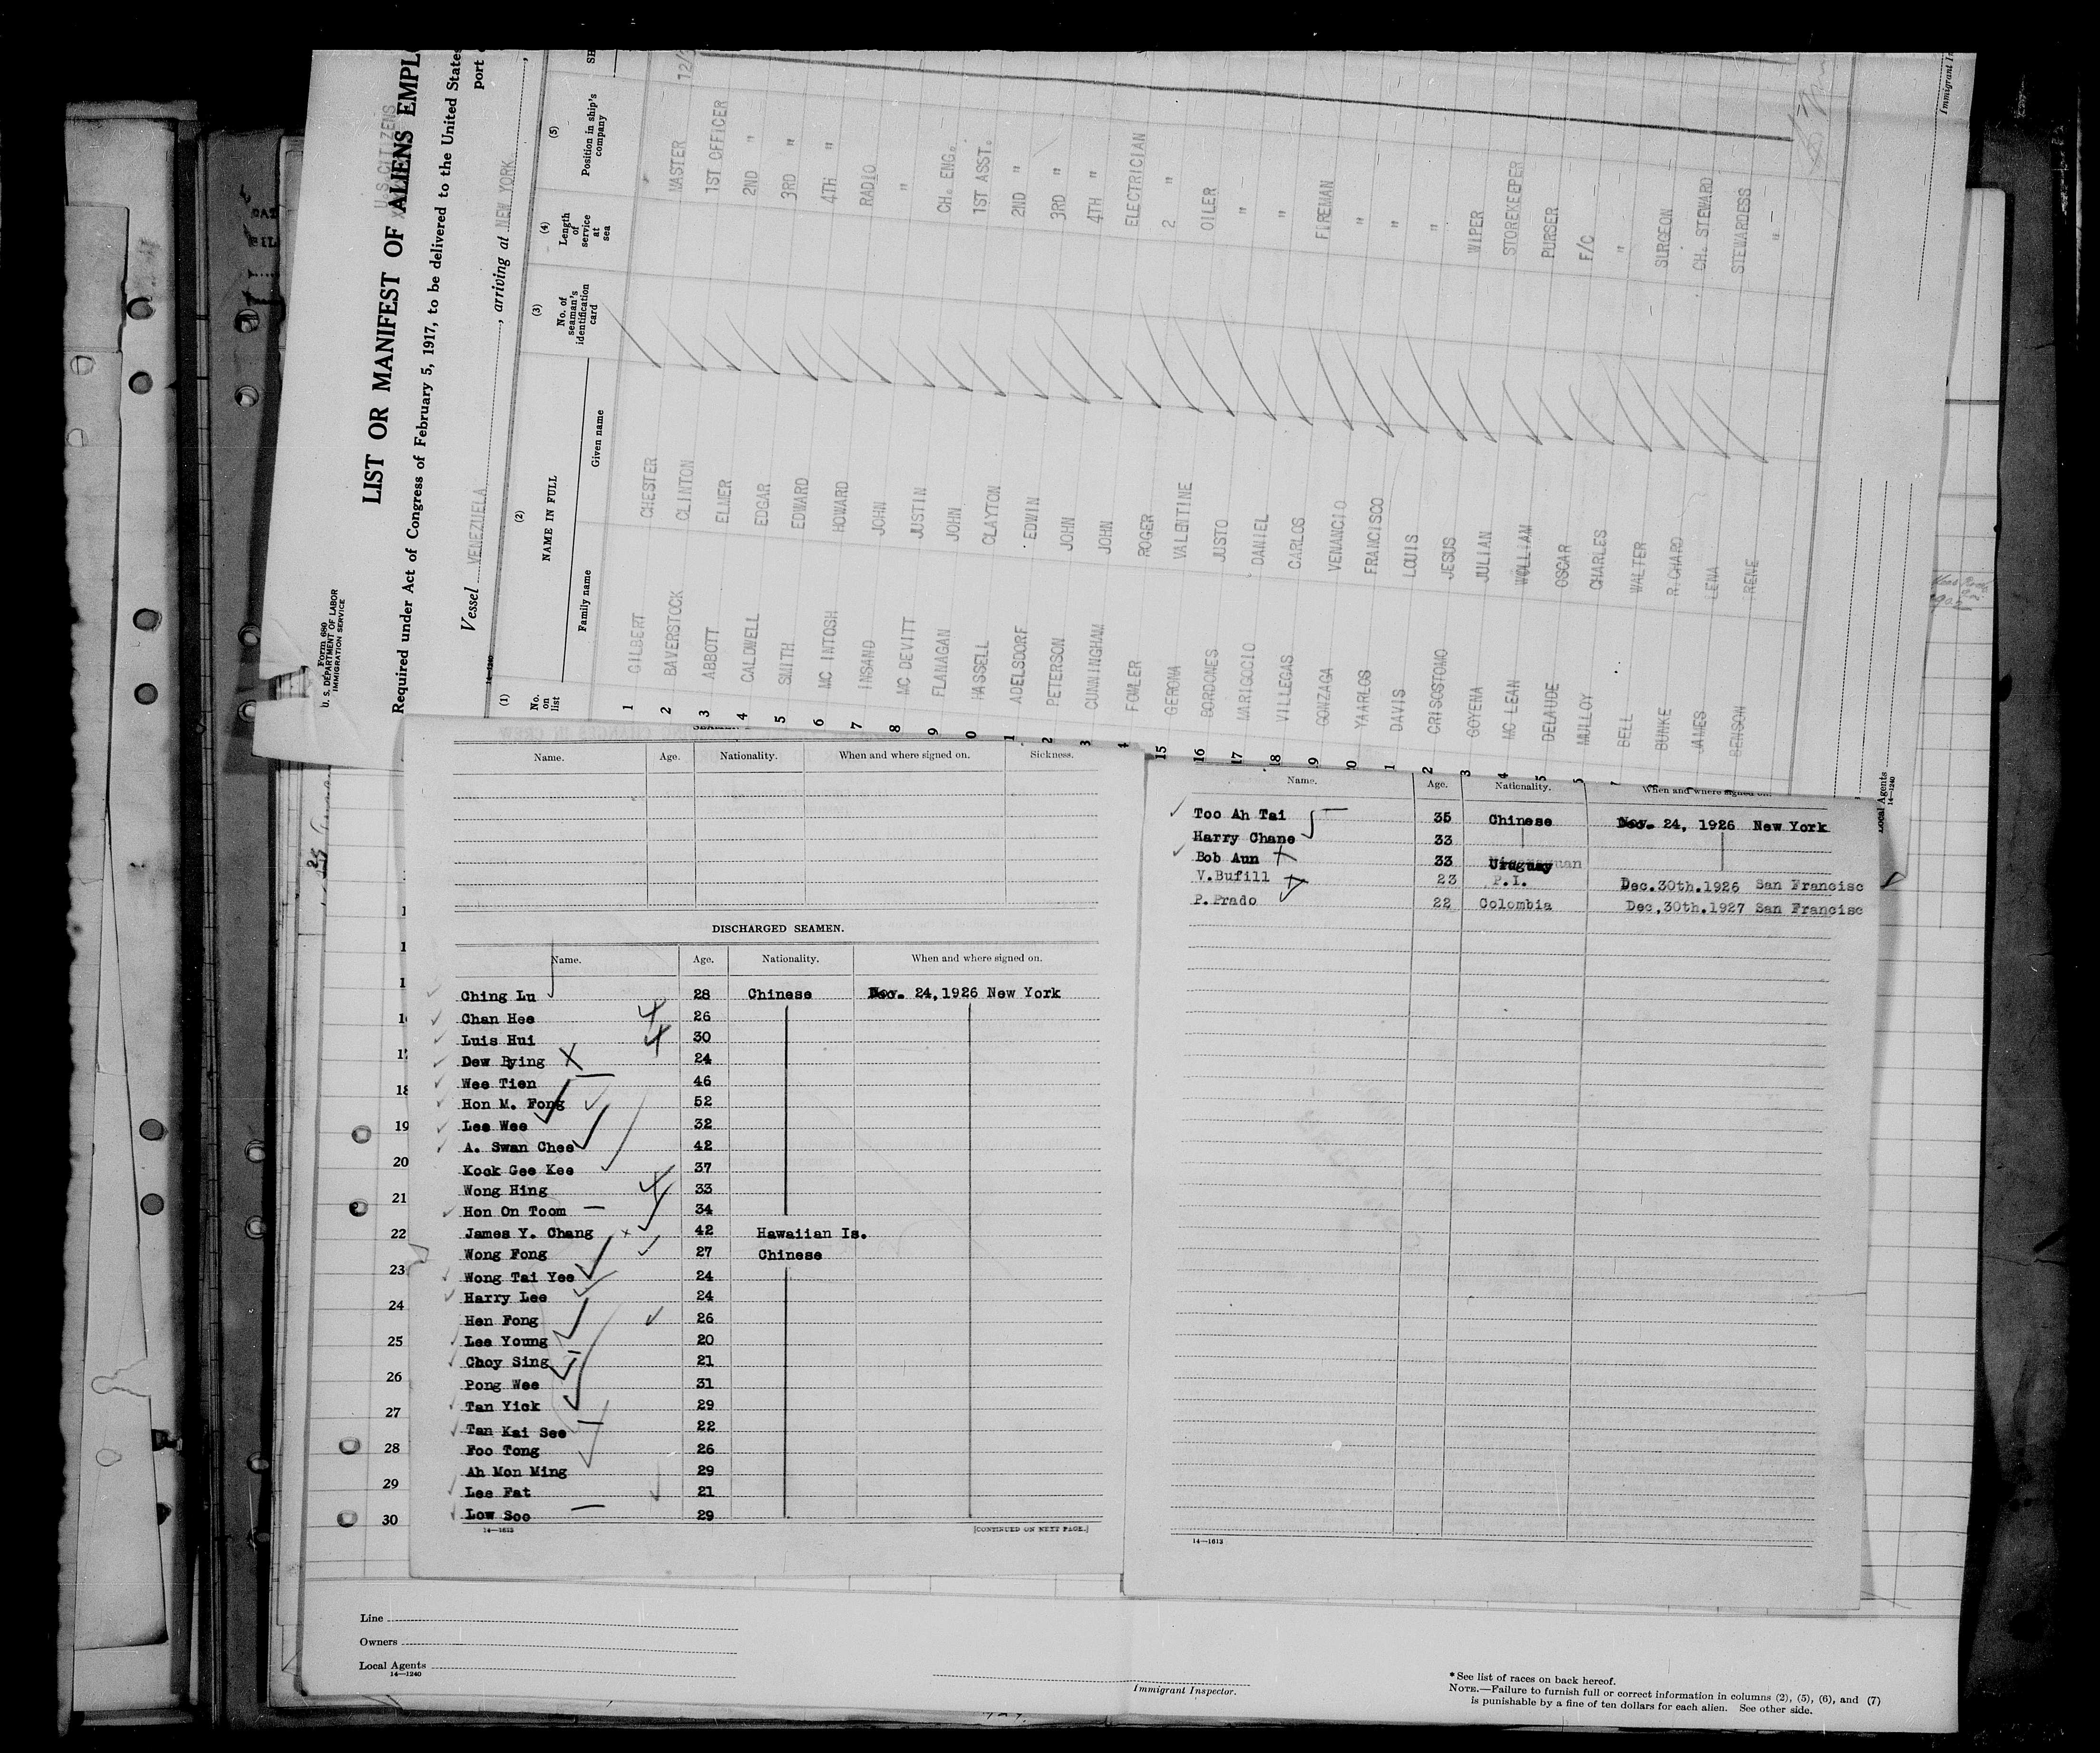 Form 680
U. S. DEPARTMENT OF LABOR
IMMIGRATION SERVICE
U.S.CITIZENS
LIST OR MANIFEST OF ALIENS EMPL
Required under Act of Congress of February 5, 1917, to be delivered to the United State
port
Vessel VENEZUELA, arriving at NEW YORK,
14—1240
(1) (2) (3) (4) (5)
No. on list
NAME IN FULL
Family name Given name
No. of seaman's identification card
Length of service at sea
Position in ship's company
12/
1 GILBERT CHESTER MASTER
2 BAVERSTOCK CLINTON 1ST OFFICER
3 ABBOTT ELMER 2ND "
4 CALDWELL EDGAR 3RD "
5 SMITH EDWARD 4TH "
6 MC INTOSH HOWARD RADIO
7 INSAND JOHN "
8 MC DEVITT JUSTIN CH. ENG.
9 FLANAGAN JOHN 1ST ASST.
0 HASSELL CLAYTON 2ND "
1 ADELSDORF EDWIN 3RD "
2 PETERSON JOHN 4TH "
3 CUNNINGHAM JOHN ELECTRICIAN
4 FOWLER ROGER 2 "
15 GERONA VALENTINE OILER
16 BORDONES JUSTO "
17 MARIGOCIO DANIEL "
18 VILLEGAS CARLOS FIREMAN
9 GONZAGA VENANCIO "
0 YAARLOS FRANCISCO "
1 DAVIS LOUIS "
2 CRISOSTOMO JESUS WIPER
3 GOYENA JULIAN STOREKEEPER
4 MC LEAN WILLIAM PURSER
5 DELAUDE OSCAR F/C
MULLOY CHARLES "
BELL WALTER SURGEON
BUNKE RICHARD CH. STEWARD
JAMES LENA STEWARDESS
BENSON IRENE "
Immigrant In
Local Agents
14—1240
Name. Age. Nationality. When and where signed on. Sickness.
DISCHARGED SEAMEN.
Name. Age. Nationality. When and where signed on.
Ching Lu 28 Chinese Nov. 24,1926 New York
Chan Hee 26
Luis Hui 30
Dew Pying 24
Wee Tien 46
Hon M. Fong 52
Lee Wee 32
A. Swan Chee 42
Kook Gee Kee 37
Wong Hing 33
Hon On Toom 34
James Y. Chang 42 Hawaiian Is.
Wong Fong 27 Chinese
Wong Tai Yee 24
Harry Lee 24
Hen Fong 26
Lee Young 20
Choy Sing 21
Pong Wee 31
Tan Yick 29
Tan Kai See 22
Foo Tong 26
Ah Mon Ming 29
Lee Fat 21
Low Soo 29
14—1613 [CONTINUED ON NEXT PAGE.]
Name. Age. Nationality. When and where signed on.
Too Ah Tai 35 Chinese Nov. 24, 1926 New York
Harry Chane 33
Bob Aun 33 Uruguay
V.Bufill 23 P.I. Dec.30th.1926 San Francisc
P.Prado 22 Colombia Dec,30th.1927 San Francisc
14—1613
18
19
20
21
22
23
24
25
26
27
28
29
30
Line
Owners
Local Agents
14—1240
Immigrant Inspector.
* See list of races on back hereof.
NOTE.—Failure to furnish full or correct information in columns (2), (5), (6), and (7)
is punishable by a fine of ten dollars for each alien. See other side.